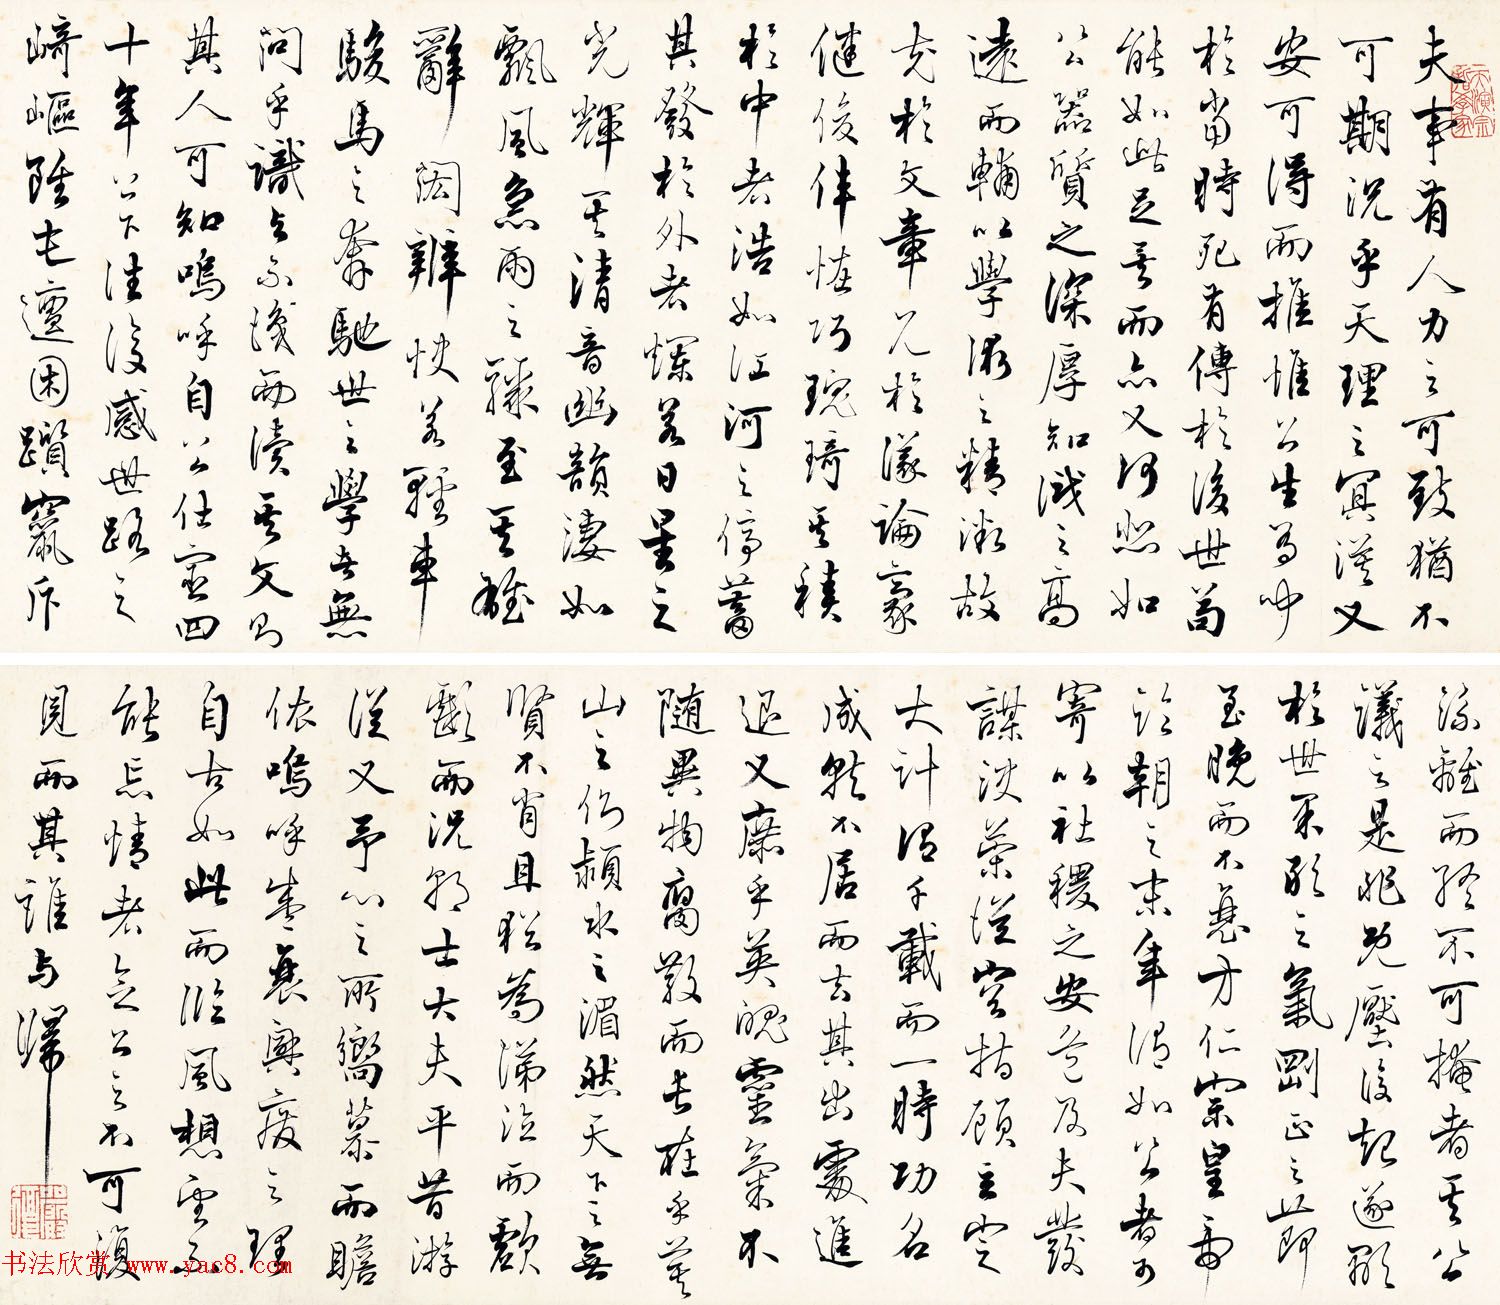 夫事有人力之可致猶不
可期況乎天理之冥漠又
安可得而推惟公生有聞
於當時死有傳於後世苟
能如此足矣而亦又何悲如
公器質之深厚知識之高
遠而輔以學術之精微故
充於文章見於議論豪
健俊偉怪巧瑰琦其積
於中者浩如江河之停蓄
其發於外者爛若日星之
光輝其清音幽韻淒如
飄風急雨之驟至其雄
辭閎辯快若輕車
駿馬之奔馳世之學者無
問乎識與不識而讀其文則
其人可知嗚呼自公仕宦四
十年上下往復感世路之
崎嶇雖屯邅困躓竄斥
流離而終不可掩者其公
議之是非既壓復起遂顯
於世果敢之氣剛正之節
至晚而不衰方仁宗皇帝
臨朝之末年謂如公者可
寄以社稷之安危及夫發
謀決策從容指顧立定
大計謂千載而一時功名
成就不居而去其出處進
退又庶乎英魄靈氣不
隨異物腐散而長在乎箕
山之側潁水之湄然天下之無
賢不肖且猶為涕泣而歔
欷而況朝士大夫平昔游
從又予心之所嚮慕而瞻
依嗚呼盛衰興廢之理
自古如此而臨風想望不
能忘情者念公之不可復
見而其誰與歸
书法欣赏 www.yac8.com